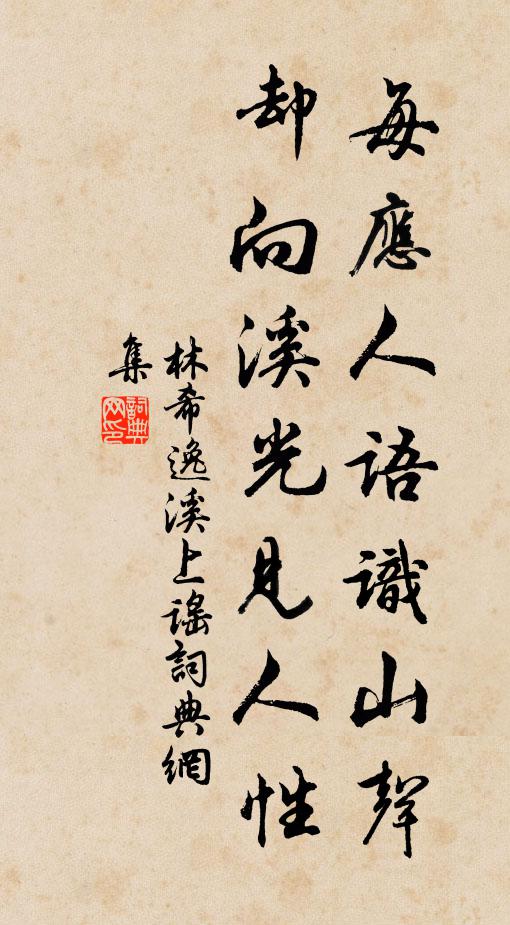 每應人語識山聲
却向溪光見人性
林希逸溪上謠詞典網
集
詞典
网印